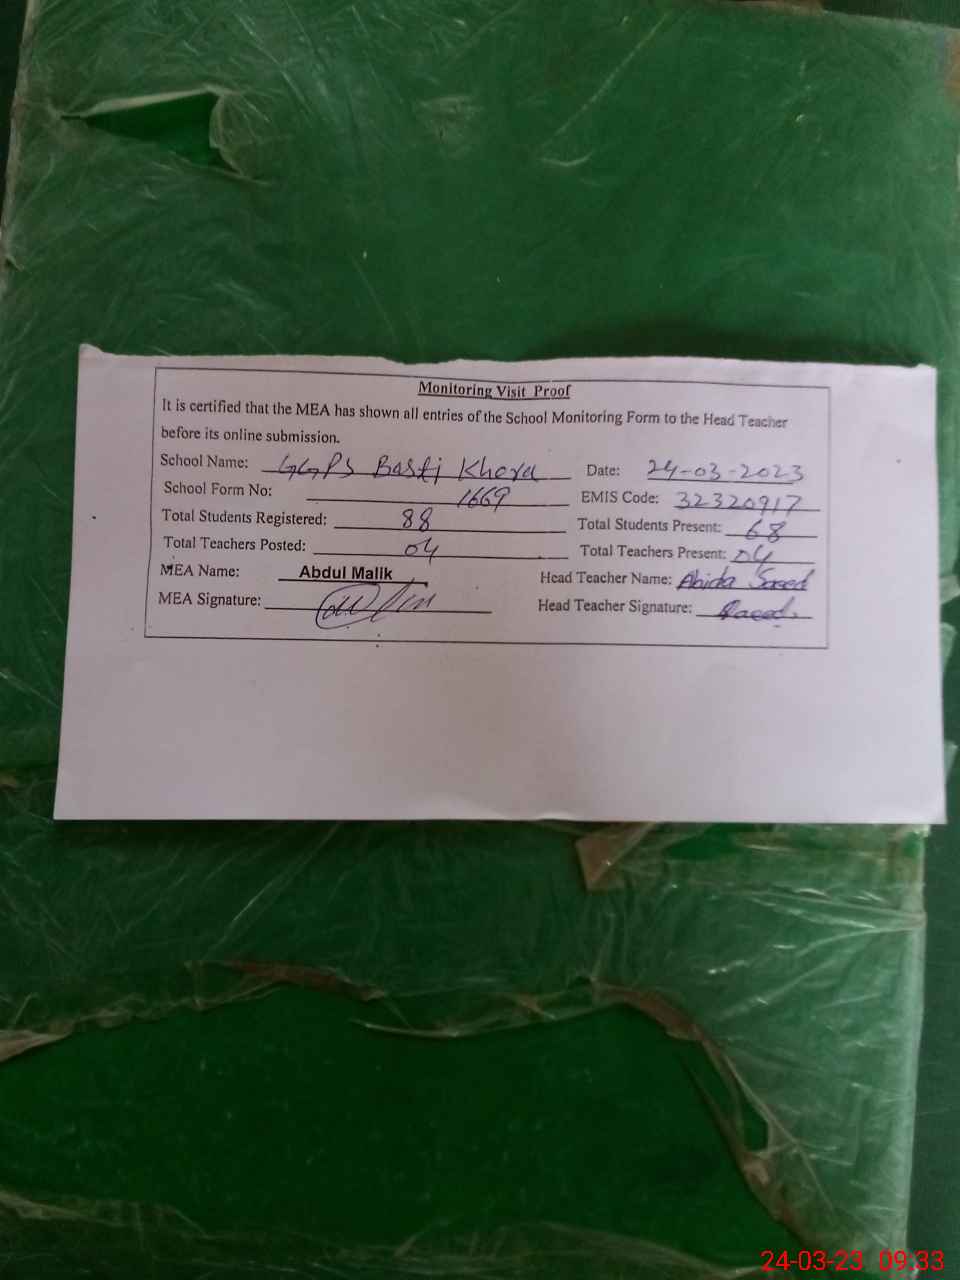 Monitoring Visit Proof
It is certified that the MEA has shown all entries of the School Monitoring Form to the Head Teacher
before its online submission.
School Name: GGPS Basti Khera Date: 24-03-2023
School Form No: 1669 EMIS Code: 32320917
Total Students Registered: 88 Total Students Present: 68
Total Teachers Posted: 04 Total Teachers Present: 04
MEA Name: Abdul Malik Head Teacher Name: Abida Saeed
MEA Signature: Head Teacher Signature: Saeed.
24-03-23 09:33